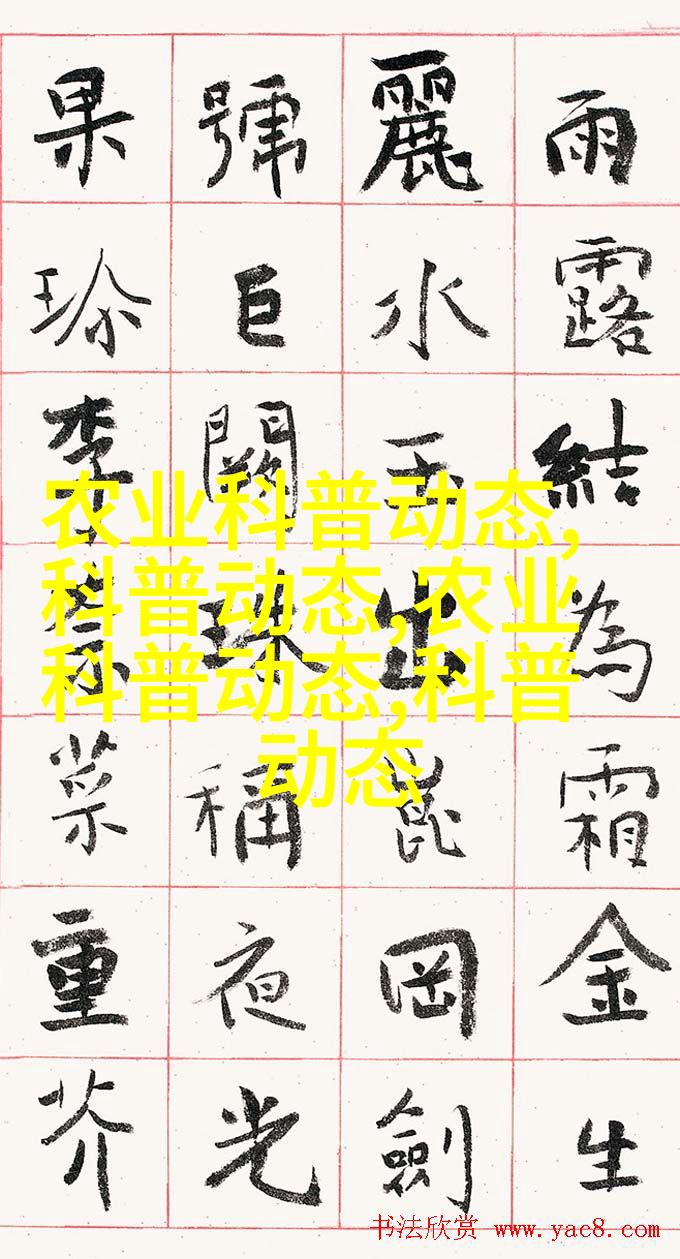 雨露結為霜金生
麗水玉出崑岡劍
號巨闕珠稱夜光
果珍李柰菜重芥
农业科普动态,
科普动态,农业
科普动态,科普
动态
书法欣赏 www.yac8.com